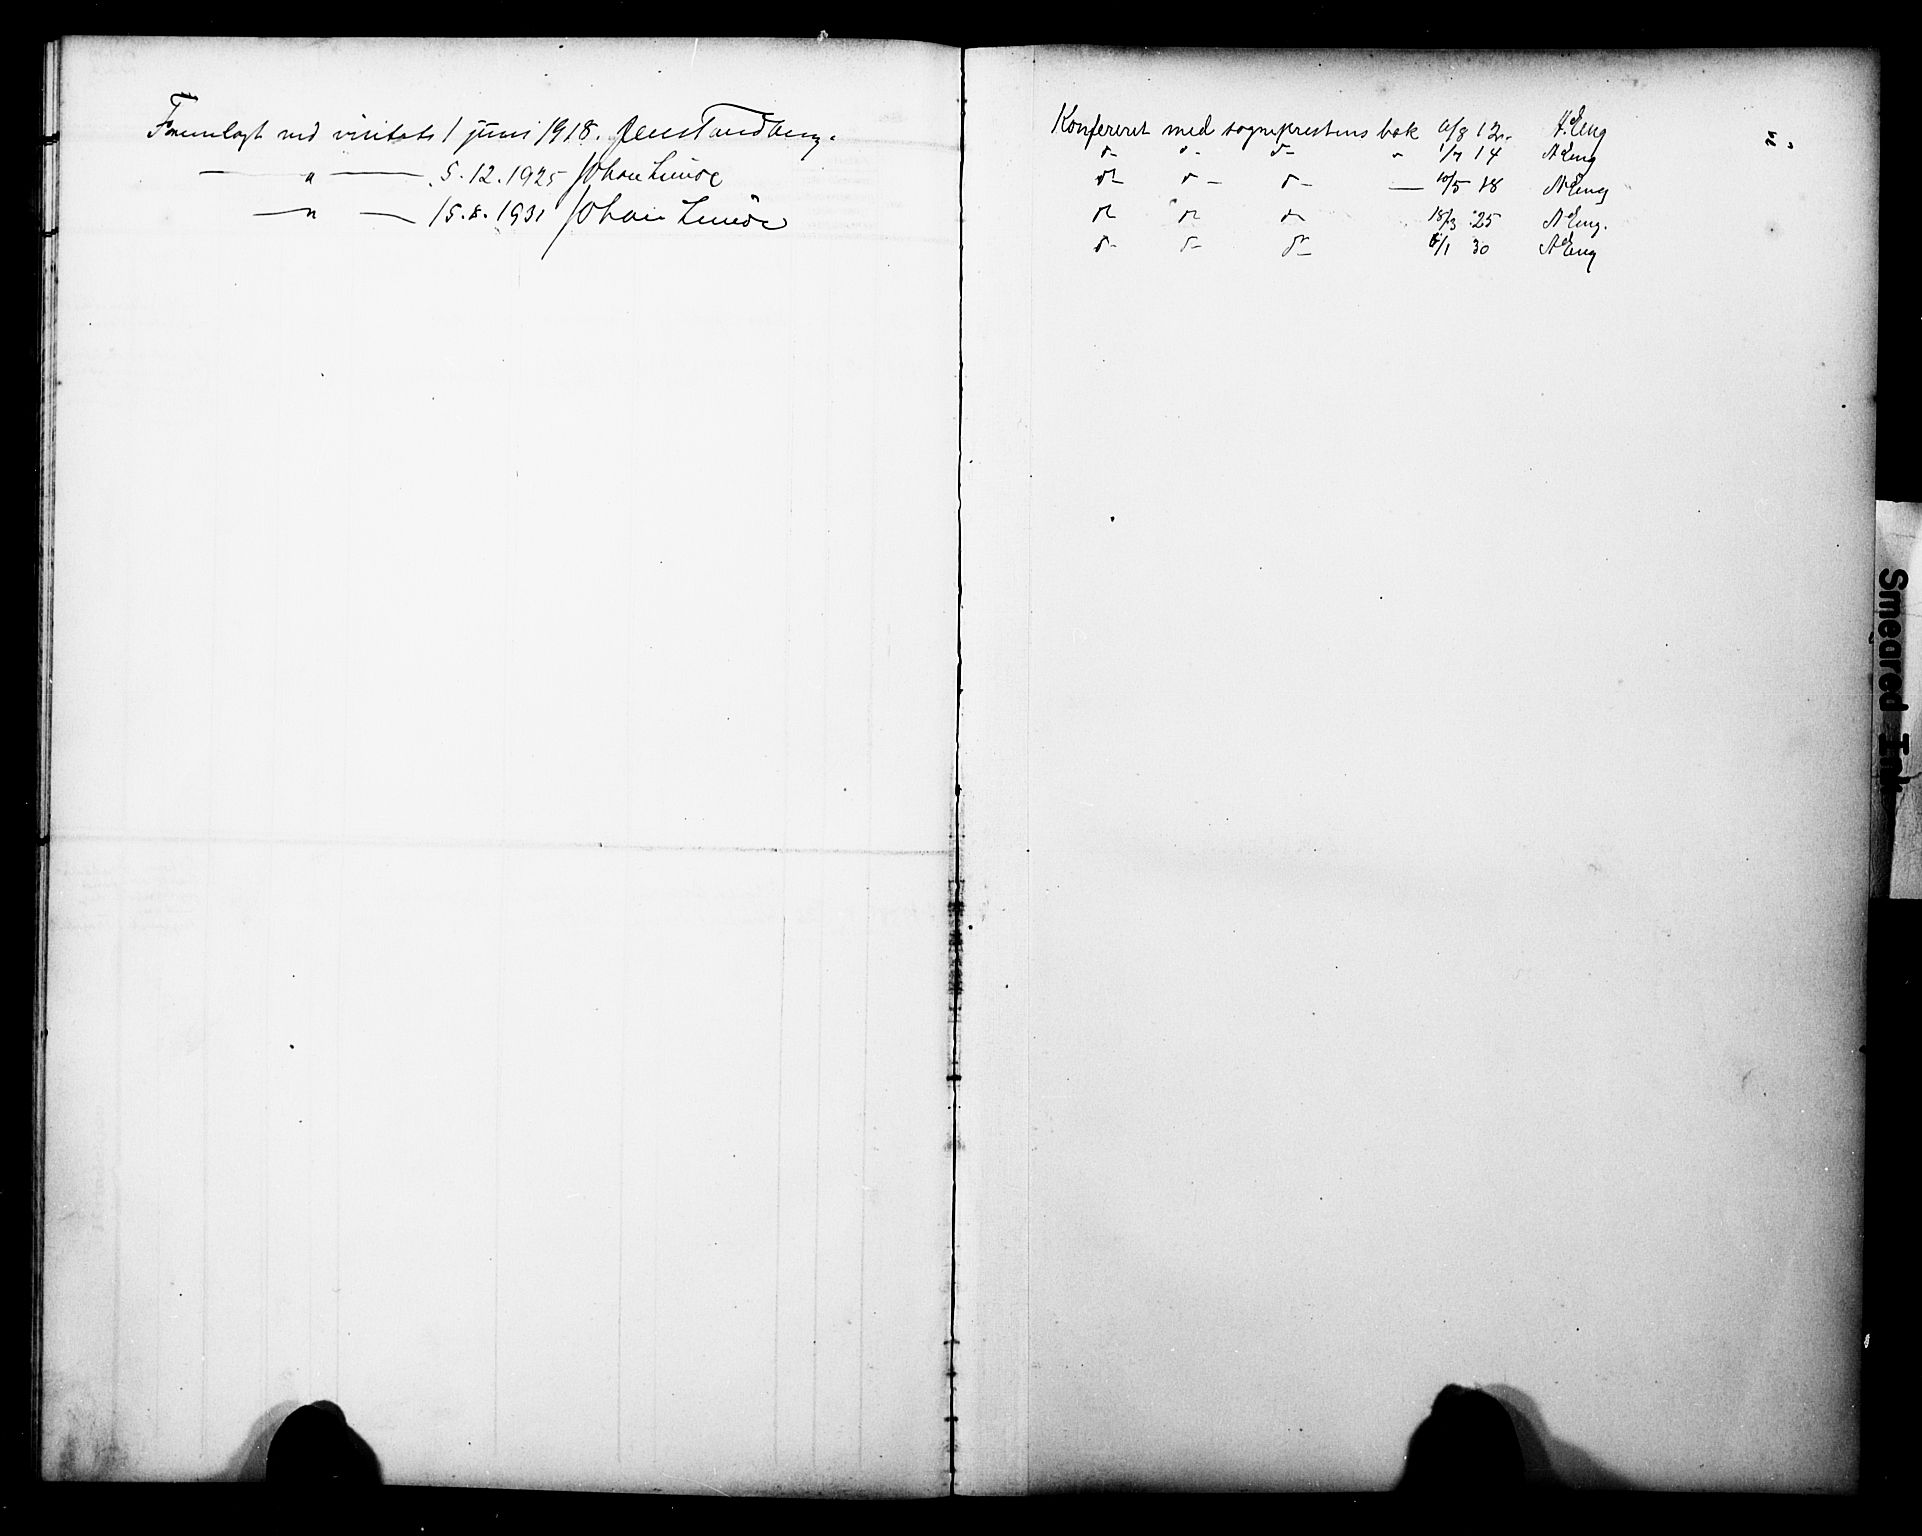 Fremlagt ved visitats 1 juni 1918. Jens Tandberg.
— " — 5.12.1925 Johan Lunde
— " — 15.8.1931 Johan Lunde
Konfereret med sogneprestens bok 6/8 12. A. Eng
d- d- d- - 1/7 14 A Eng
do d- d- — 10/5 18 A Eng
do do do 18/3 25 A Eng.
d- d- do 6/1 30 A Eng
Smeared Ink